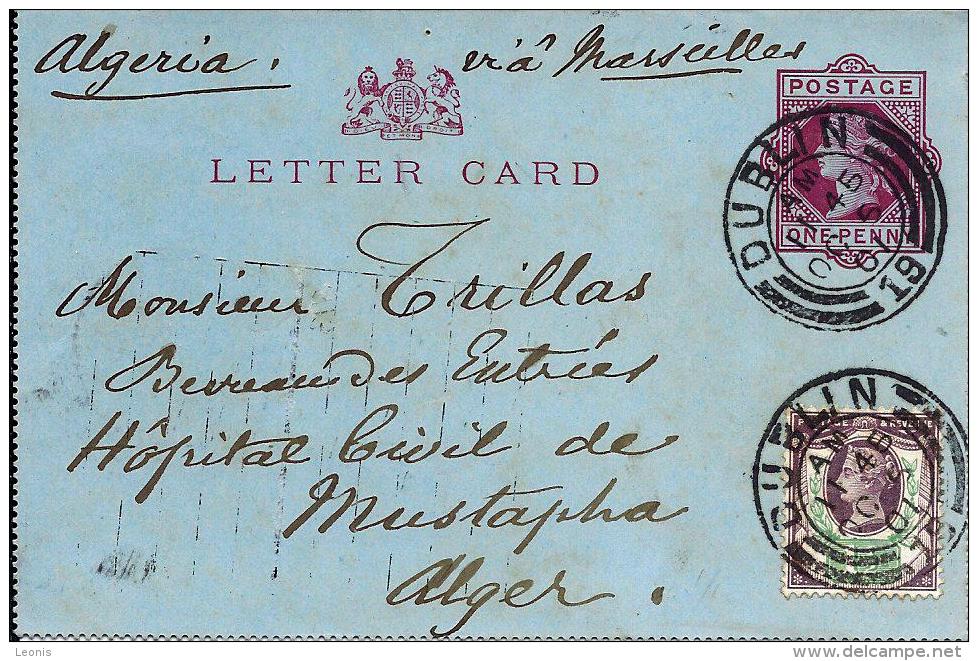 Algeria. viâ Marseilles
LETTER CARD
POSTAGE
ONE-PENNY
DUBLIN
11 45 AM
OC 5
01
19
Monsieur Trillas
Bureau des Entrées
Hôpital Civil de
Mustapha
Alger.
DUBLIN
11 45 AM
OC 5
01
19
Leonis
delcampe.net